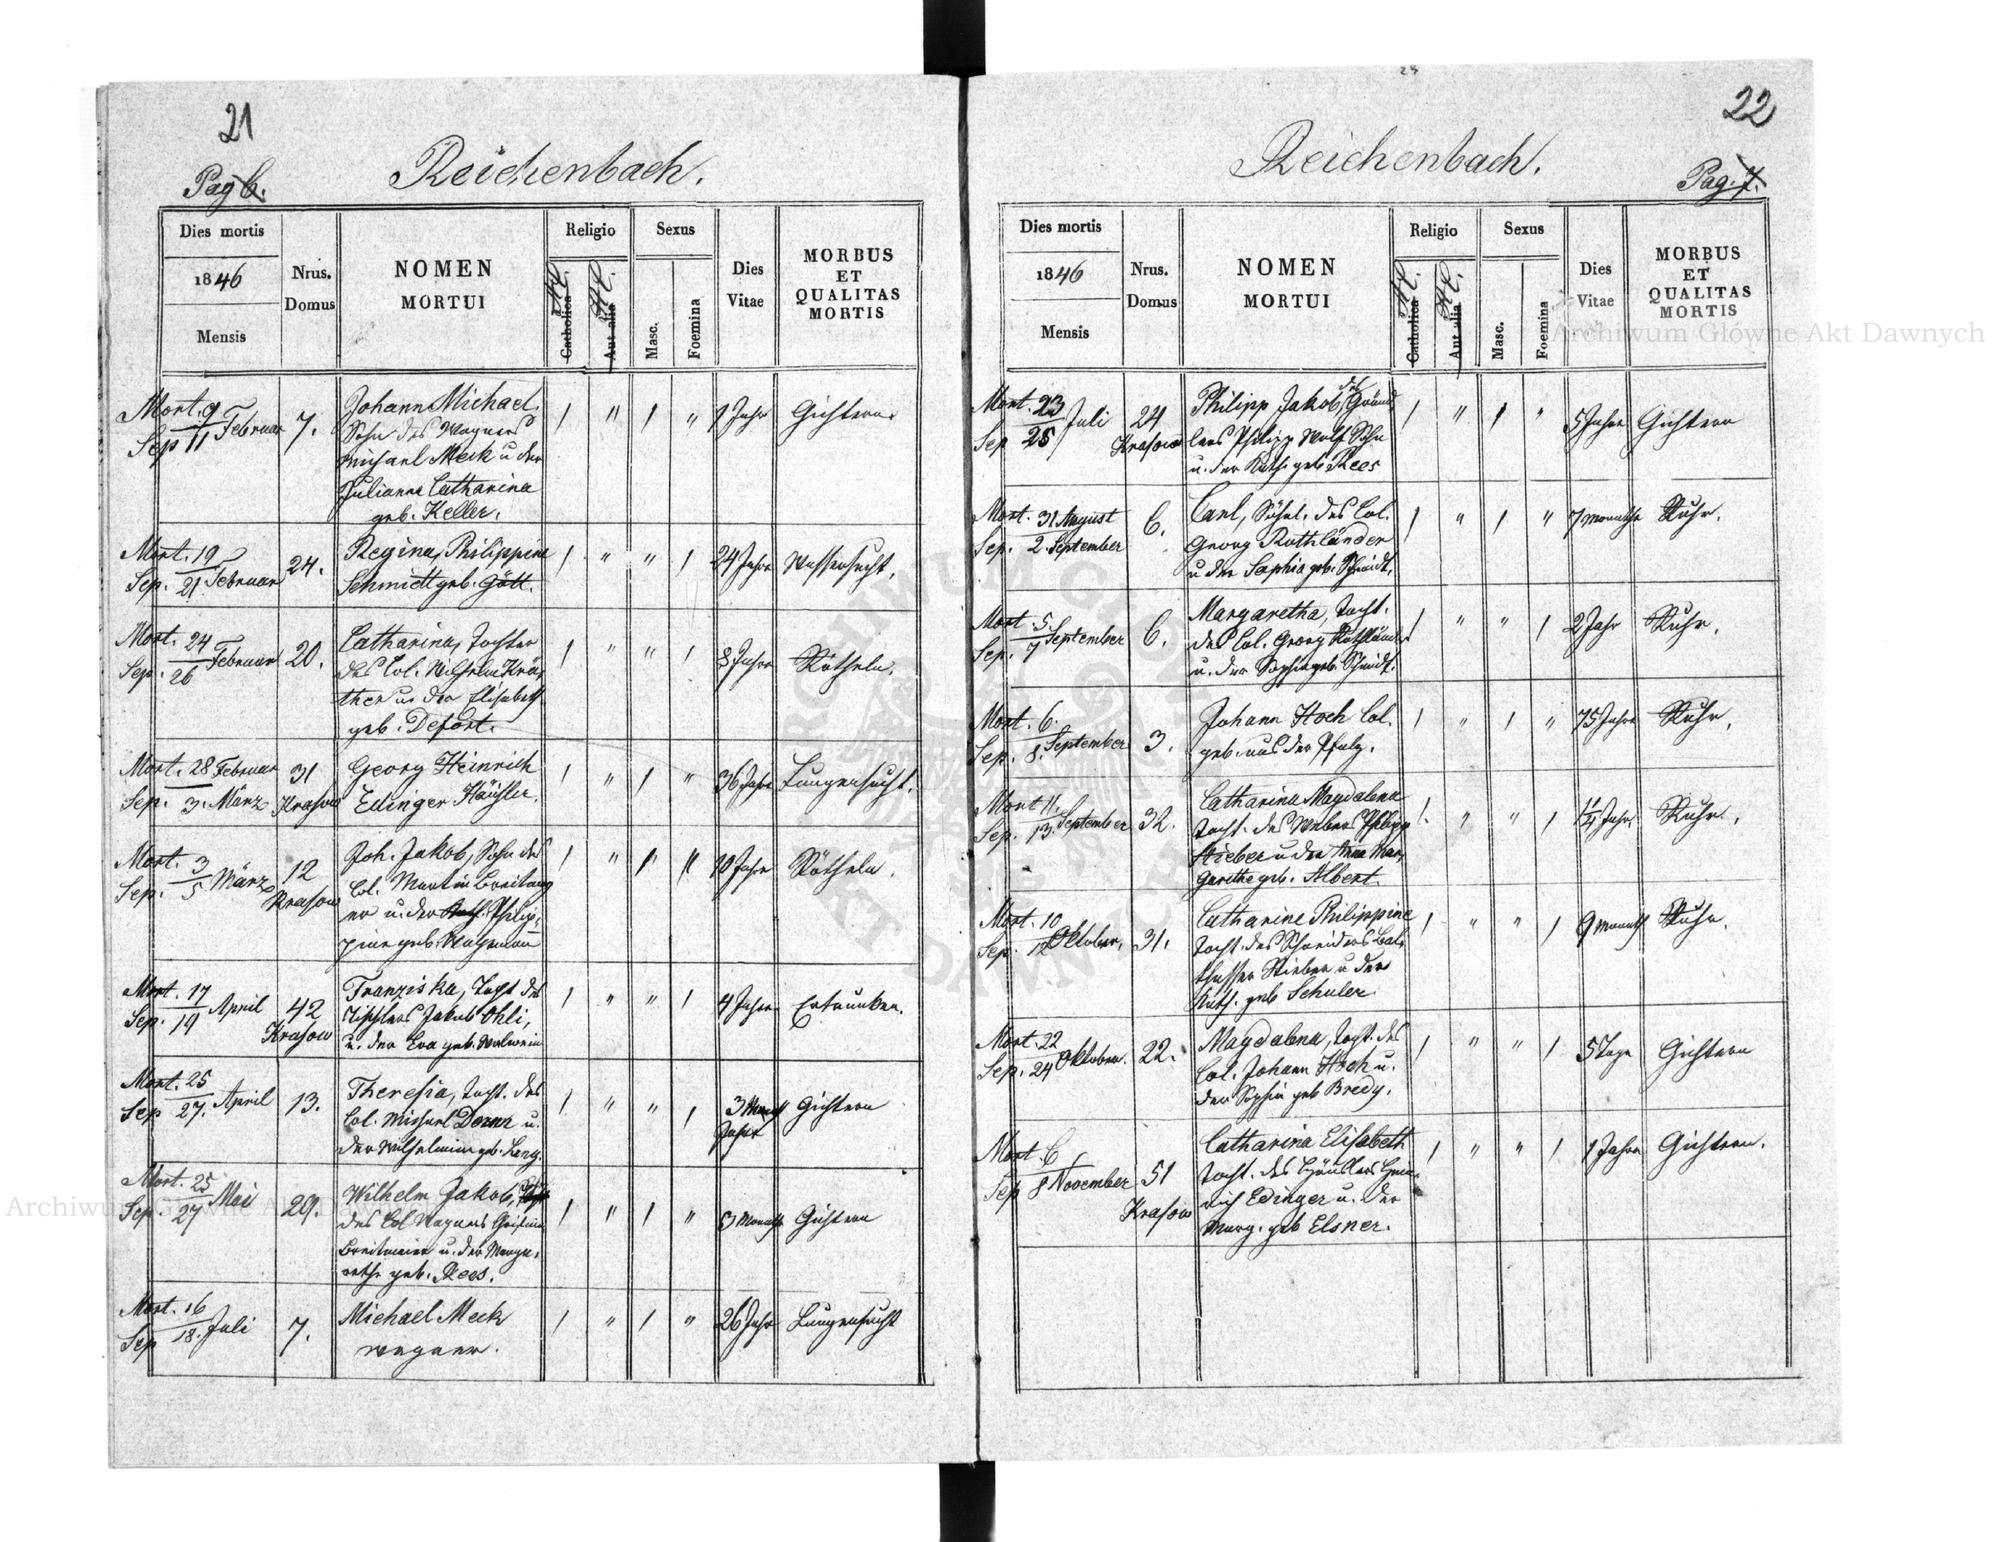 21
Pag 6.
Reichenbach.
Dies mortis
1846
Mensis
Nrus.
Domus
NOMEN
MORTUI
Religio
Catholica
A.C.
Aut alia
H.C.
Sexus
Masc.
Foemina
Dies
Vitae
MORBUS
ET
QUALITAS
MORTIS
Mort. 9
Sep 11 Februar
7.
Johann Michael
Sohn des Wagners
Michael Meck u der
Juliana Catharina
geb. Keller.
1 " 1 "
1 Jahr
Gichtern
Mort. 19
Sep. 21 Februar
24.
Regina Philippine
Schmidt geb. Gött.
1 " " 1
24 Jahre
Wassersucht.
Mort. 24
Sep. 26 Februar
20.
Catharina, Tochter
des Col. Wilhelm Krä-
ther u. der Elisabeth
geb. Defort.
1 " " 1
8 Jahre
Rötheln.
Mort. 28 Februar
Sep. 3. März
31
Krasow
Georg Heinrich
Edinger Häusler.
1 " 1 "
36 Jahre
Lungensucht.
Mort. 3
Sep. 5 März
12
Krasow
Joh. Jakob, Sohn des
Col. Martin Breitmay
er u. der Kath. Philip-
pine geb. Wagemann
1 " 1 "
10 Jahre
Rötheln.
Mort. 17
Sep. 19 April
42
Krasow
Franziska, Tocht des
Tischlers Jakob Ohli,
u. der Eva geb.
1 " " 1
4 Jahre
Ertrunken.
Mort. 25
Sep 27. April
13.
Theresia, Tocht. des
Col. Michael Dornr u.
der Wilhelmine geb. Lang.
1 " " 1
3 Monat
Gichtern
Mort. 25
Sep. 27 Mai
29.
Wilhelm Jakob,
des Col Wagners
Breitmeier u. der Marga-
rethe geb. Rees.
1 " 1 "
3 Monath
Gichtern
Mort. 16
Sep 18. Juli
7.
Michael Meck
Wagner.
1 " 1 "
26 Jahr
Lungensucht
22
Reichenbach.
Pag. 7.
Dies mortis
1846
Mensis
Nrus.
Domus
NOMEN
MORTUI
Religio
Catholica
A.C.
Aut alia
H.C.
Sexus
Masc.
Foemina
Dies
Vitae
MORBUS
ET
QUALITAS
MORTIS
Mort. 23
Sep 25 Juli
24
Krasow
Philipp Jakob, des Gränd
lers Philipp Wolf Sohn
u. der Kath. geb Rees
1 " 1 "
5 Jahre
Gichtern
Mort. 31 August
Sep. 2. September
6.
Carl, Söhnl. des Col.
Georg Rothländer
u der Sophia geb. Schmidt.
1 " 1 "
7 Monathe
Ruhr.
Mort. 5.
Sep. 7 September
6.
Margaretha, Tocht.
des Col. Georg Rothländer
u. der Sophie geb. Schmidt.
1 " " 1
2 Jahr
Ruhr.
Mort. 6.
Sep. 8. September
3.
Johann Hoch Col.
geb. aus der Pfalz.
1 " 1 "
75 Jahre
Ruhr.
Mort 11.
Sep. 13. September
32.
Catharina Magdalena
Tocht. des Webers Philipp
Stieber u der Anna Mar-
garethe geb. Albert.
1 " " 1
Jahr
Ruhr.
Mort. 10
Sep. 12 Oktober,
31.
Catharine Philippine
Tocht. des Schneiders Bal-
thasser Stieber u der
Kath. geb Schuler.
1 " " 1
9 Monath
Ruhr.
Mort. 22
Sep. 24 Oktober.
22.
Magdalena, Tocht. des
Col. Johann Hoch u.
der Sophie geb Bredy.
1 " " 1
5 Tage
Gichtern
Mort. 6
Sep 8 November
51
Krasow
Catharina Elisabeth
Tocht. des Häuslers Hein-
rich Edinger u. der
Marg. geb Elsner.
1 " " 1
1 Jahre
Gichtern.
Archiwum Główne Akt Dawnych
Archiwum Główne Akt Dawnych